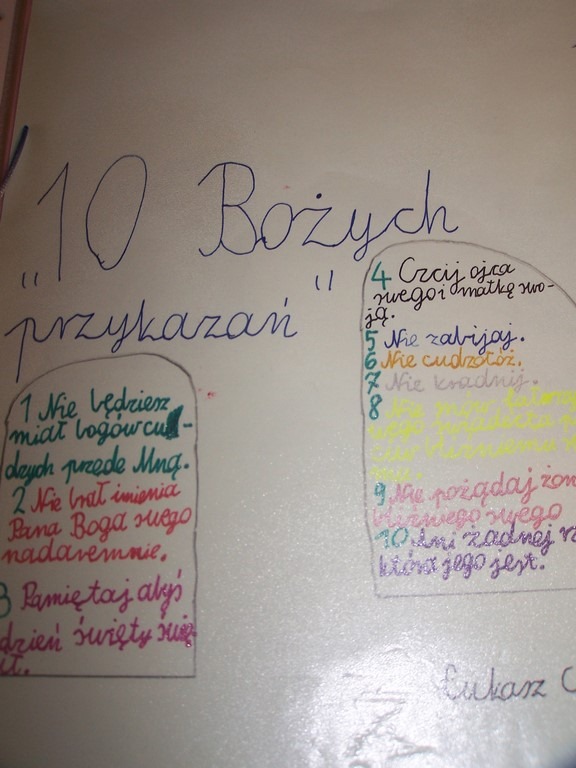 „10 Bożych
przykazań"
1 Nie będziesz
miał bogów cu-
dzych przede Mną.
2 Nie brał imienia
Pana Boga swego
nadaremnie.
3 Pamiętaj abyś
dzień święty świę
ił.
4 Czcij ojca
swego i matkę swo-
ją.
5 Nie zabijaj.
6 Nie cudzołóż.
7 Nie kradnij.
8 Nie mów
świadectwa
bliźniemu
mu.
9 Nie pożądaj żon
bliźniego swego
10 Ani żadnej rz
która jego jest.
Łukasz C